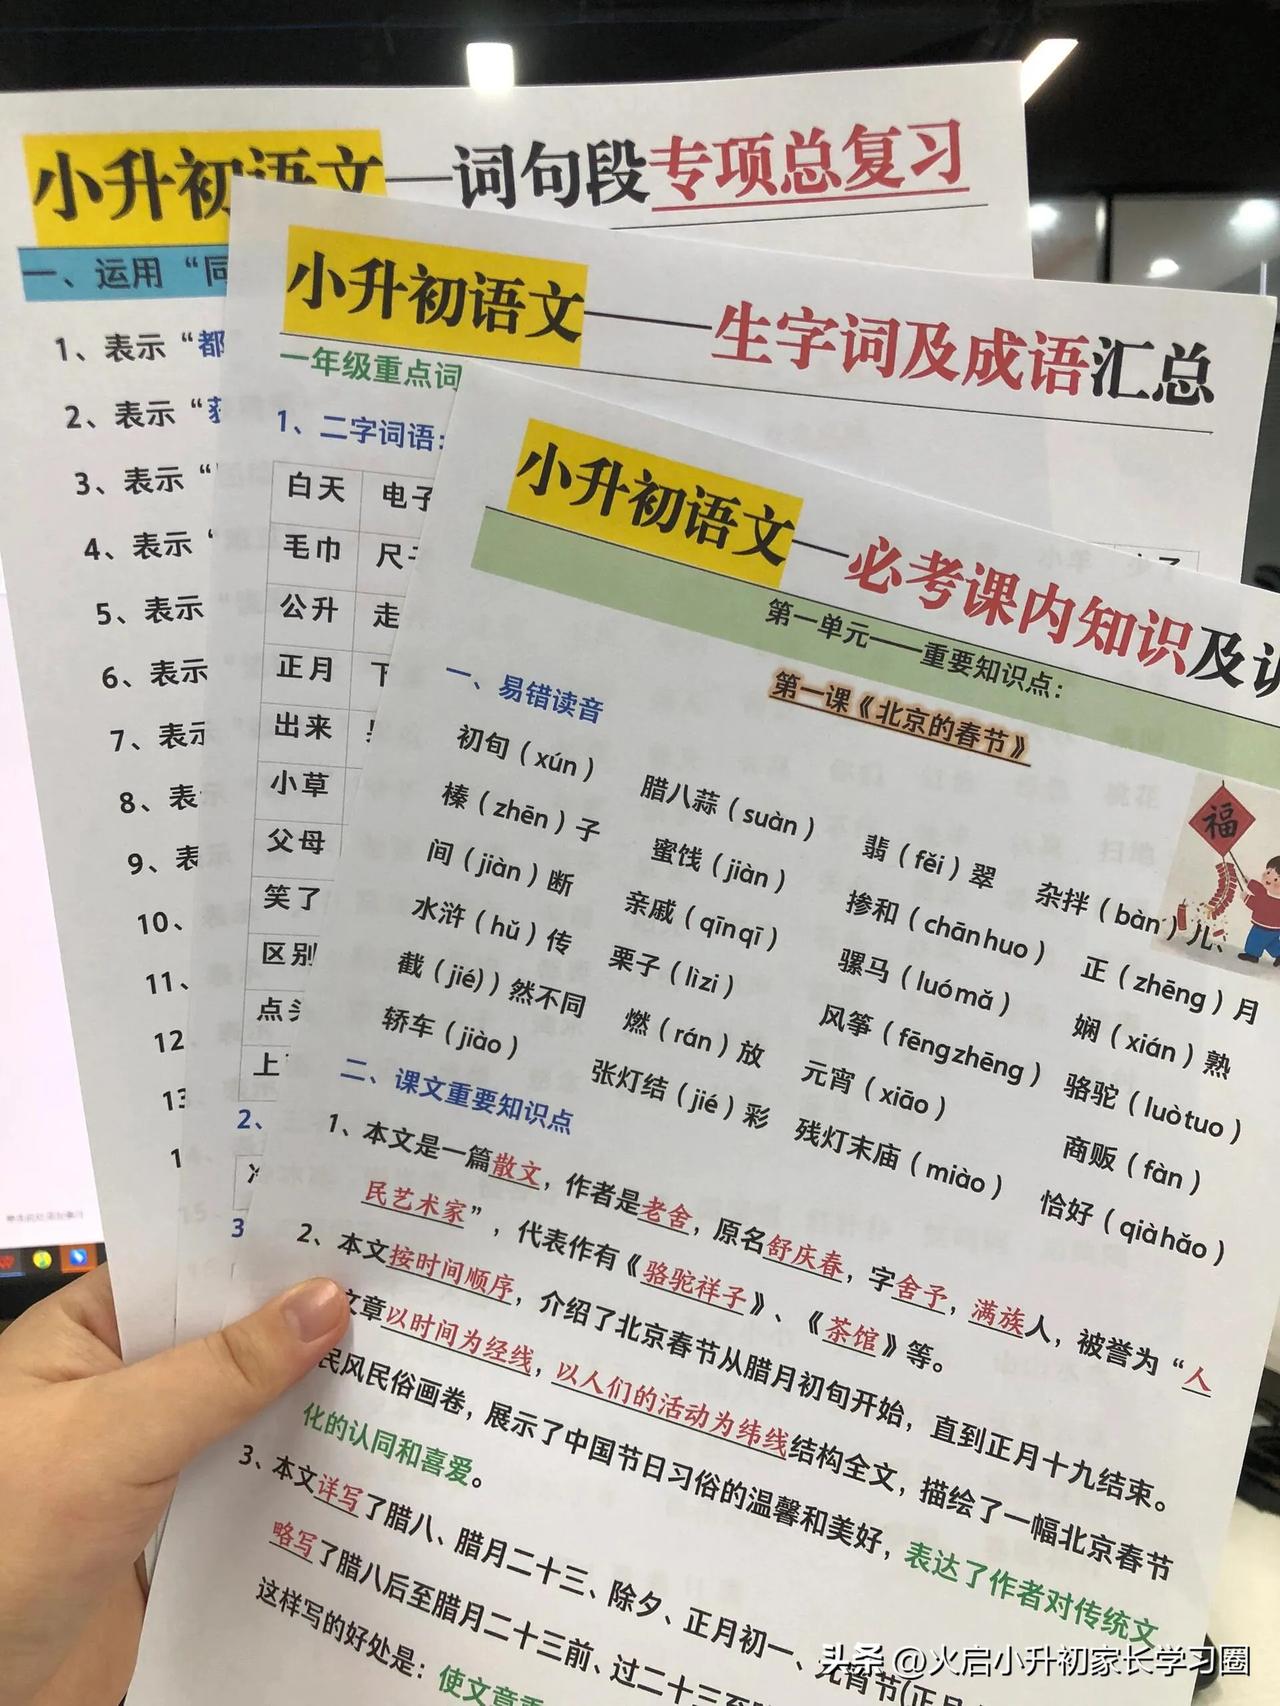 小升初语文——词句段专项总复习
一、运用“同
1、表示“都
2、表示“
3、表示“
4、表示
5、表示
6、表示
7、表示
8、表
9、表
10、
11、
12
13
小升初语文——生字词及成语汇总
一年级重点词
1、二字词语：
白天 电子
毛巾 尺子
公升 走
正月 下
出来
小草
父母
笑了
区别
点头
上
2、
3
小升初语文——必考课内知识及
第一单元——重要知识点：
第一课《北京的春节》
一、易错读音
初旬（xún） 腊八蒜（suàn） 翡（fěi）翠 杂拌（bàn）儿、
榛（zhēn）子 蜜饯（jiàn） 掺和（chānhuo） 正（zhēng）月
间（jiàn）断 亲戚（qīnqī） 骡马（luómǎ） 娴（xián）熟
水浒（hǔ）传 栗子（lìzi） 风筝（fēngzhēng） 骆驼（luòtuo）
截（jié)）然不同 燃（rán）放 元宵（xiāo） 商贩（fàn）
轿车（jiào） 张灯结（jié）彩 残灯末庙（miào） 恰好（qiàhǎo）
二、课文重要知识点
1、本文是一篇散文，作者是老舍，原名舒庆春，字舍予，满族人，被誉为“人
民艺术家”，代表作有《骆驼祥子》、《茶馆》等。
2、本文按时间顺序，介绍了北京春节从腊月初旬开始，直到正月十九结束。
文章以时间为经线，以人们的活动为纬线结构全文，描绘了一幅北京春节
民风民俗画卷，展示了中国节日习俗的温馨和美好，表达了作者对传统文
化的认同和喜爱。
3、本文详写了腊八、腊月二十三、除夕、正月初一、元宵节(正月
略写了腊八后至腊月二十三前、过二十三至
这样写的好处是：使文章重
福
头条 @火启小升初家长学习圈